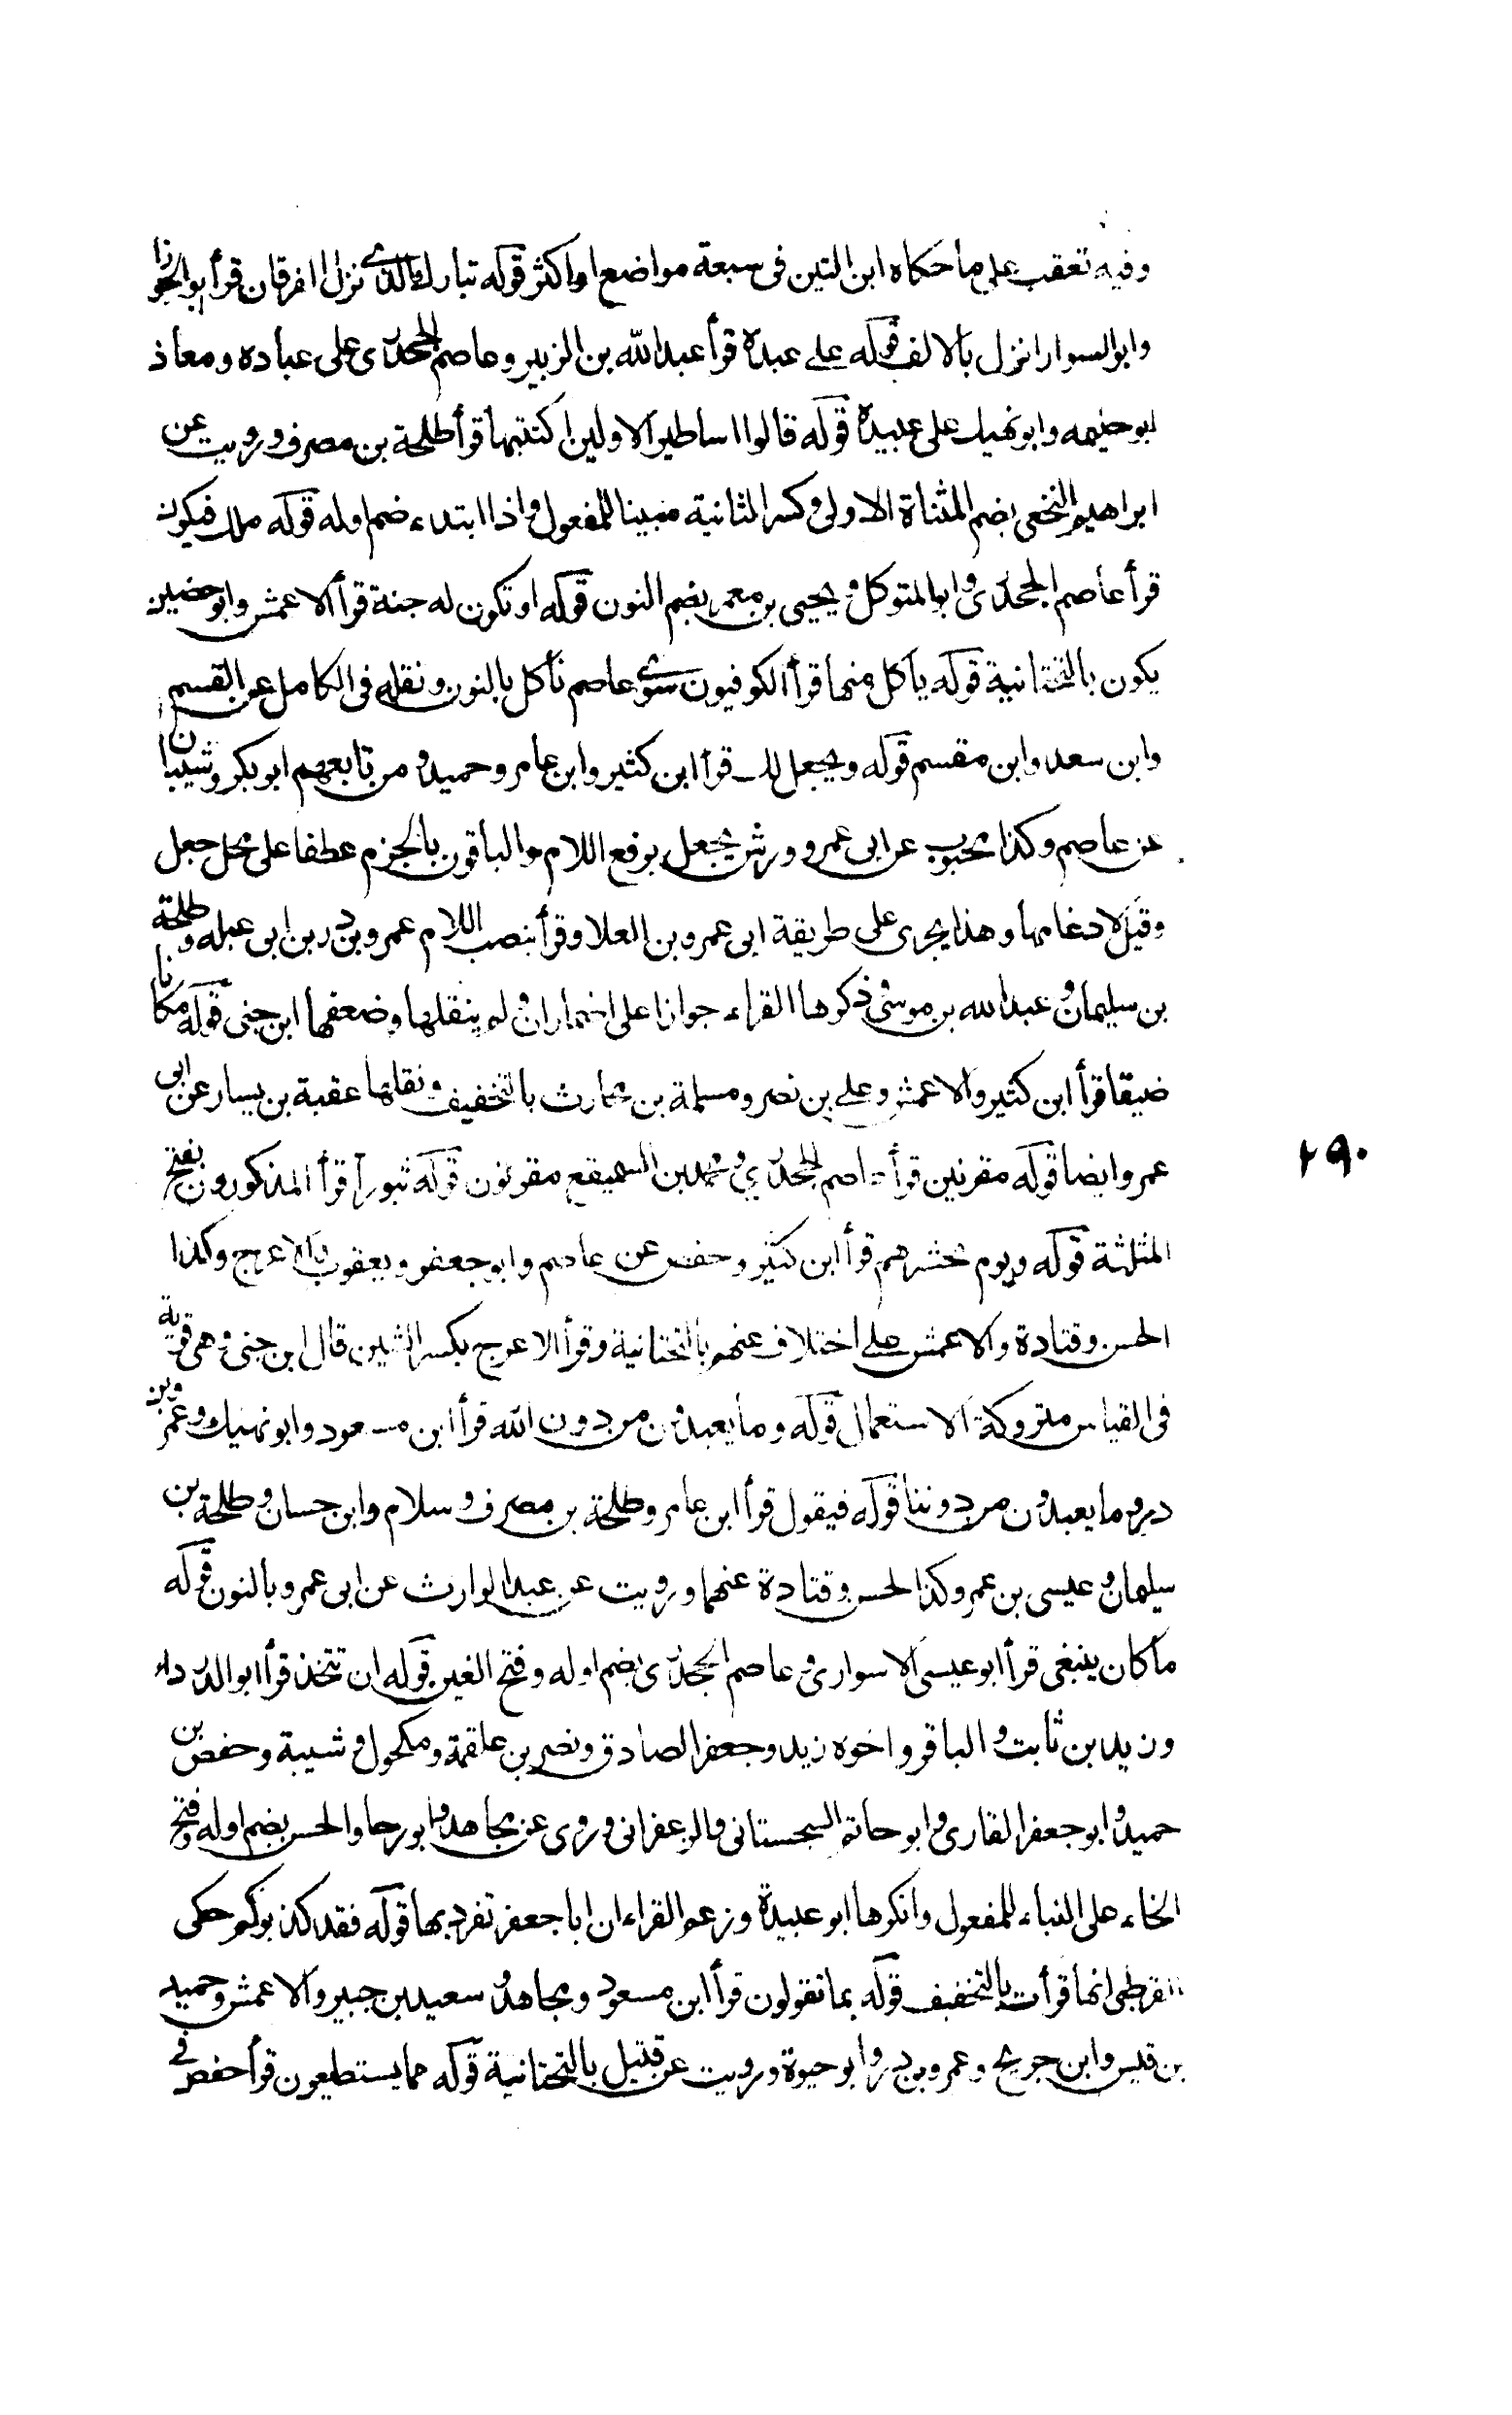 وفيه تعقب على ما حكاه ابن التين فى سبعة مواضع او اكثر قوله تبارك الذى نزل الفرقان قرأ ابو الجوزا
وابو السوار انزل بالالف قوله على عبده قرأ عبد الله بن الزبير وعاصم الجحدرى على عباده ومعاذ
ابو حليمه وابو نهيك على عبيده قوله قالوا اساطير الاولين اكتتبها قرأ طلحة بن مصرف ورويت عن
ابراهيم النخعى بضم المثناة الاولى وكسر الثانية مبينا للمفعول واذا ابتدء ضم اوله قوله ملك فيكون
قرأ عاصم الجحدرى وابو المتوكل ويحيى بن معمر بضم النون قوله او تكون له جنة قرأ الاعمش وابو حضين
يكون بالتحتانية قوله يأكل منها قرأ الكوفيون سوى عاصم نأكل بالنون ونقله فى الكامل عن القسم
وابن سعد وابن مقسم قوله ويجعل لك قرأ ابن كثير وابن عامر وحميد ومن تابعهم ابو بكر وشيبان
عن عاصم وكذا محبوب عن ابى عمرو وورش يجعل برفع اللام والباقون بالجزم عطفا على محل جعل
وقيل لادغامها وهذا يجرى على طريقة ابى عمرو بن العلا وقرأ بنصب اللام عمرو بن در بن ابى عبله وطلحة
بن سليمان وعبد الله بن موسى ذكرها القراء جوازا على اضمار ان ولم ينقلها وضعفها ابن جنى قوله مكانا
ضيقا قرأ ابن كثير والاعمش وعلى بن نصر ومسلمة بن محارث بالتخفيف ونقلها عقبة بن يسار عن ابى
عمرو ايضا قوله مقرنين قرأ عاصم الجحدرى ومحمد بن السميقع مقرنون قوله ثبورا قرأ المذكورون بفتح
المثلثة قوله ويوم نحشرهم قرأ ابن كثير وحفص عن عاصم وابو جعفر ويعقوب والاعرج وكذا
الحسن وقتادة والاعمش على اختلاف عنهم بالتحتانية وقرأ الاعرج بكسر الشين قال ابن جنى وهى قوية
فى القياس متروكة الاستعمال قوله وما يعبدون من دون الله قرأ ابن مسعود وابو نهيك وعمر وبن
در وما يعبدون من دوننا قوله فيقول قرأ ابن عامر وطلحة بن مصرف وسلام وابن حسان وطلحة بن
سليمان وعيسى بن عمر وكذا الحسن وقتادة عنهما ورويت عن عبد الوارث عن ابى عمرو بالنون قوله
ما كان ينبغى قرأ ابو عيسى الاسوارى وعاصم الجحدرى بضم اوله وفتح الغين قوله ان تتخذ قرأ ابو الدرداء
وزيد بن ثابت والباقر واخوه زيد وجعفر الصادق ونصر بن علقمة ومكحول وشيبة وحفص بن
حميد وابو جعفر القارى وابو حاتم السجستانى والزعفرانى وروى عن مجاهد وابو رجا والحسن بضم اوله وفتح
الخاء على البناء للمفعول وانكرها ابو عبيدة وزعم القراء ان ابا جعفر تفرد بها قوله فقد كذبوكم حكى
القرطبى انها قرأت بالتخفيف قوله بما تقولون قرأ ابن مسعود ومجاهد وسعيد بن جبير والاعمش وحميد
بن قيس وابن جريح وعمرو بن در وابو حيوة ورويت عن قتيل بالتحتانية قوله فما يستطيعون قرأ حفص فى
٢٩٠